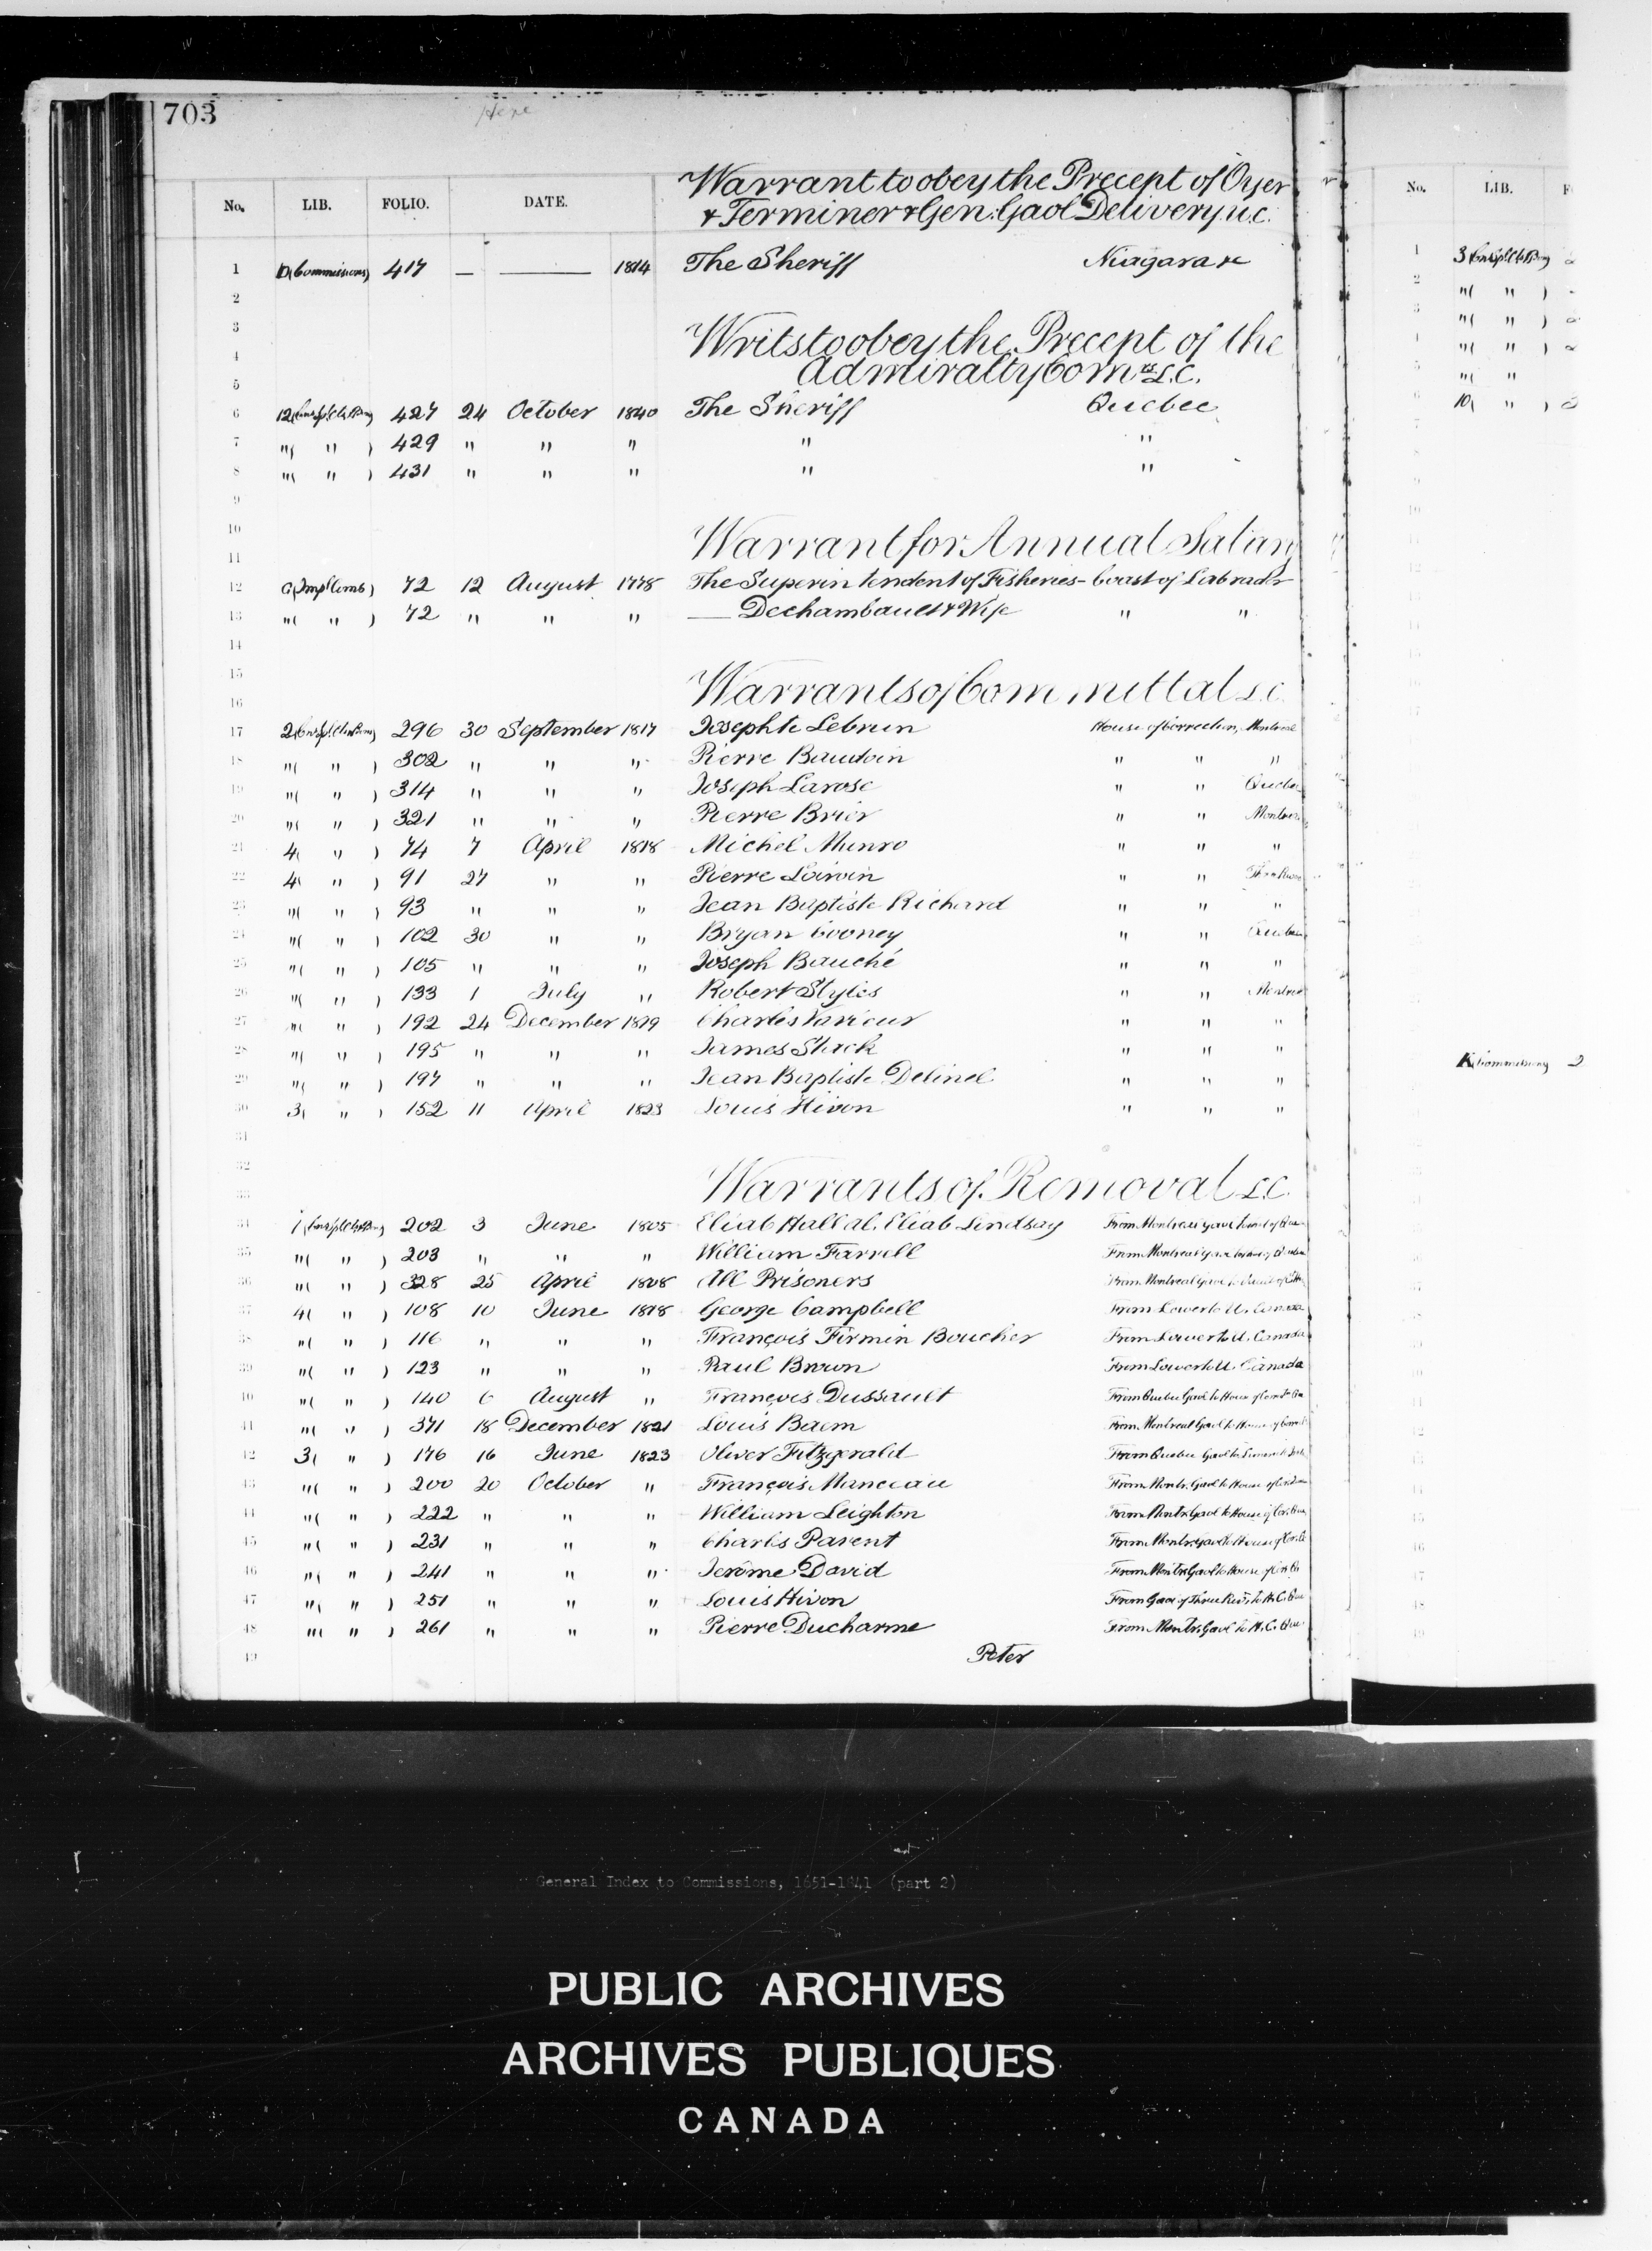 703
Here
Warrant to obey the Precept of Oyer
No. LIB. FOLIO. DATE. & Terminer & Gen. Gaol Delivery U.C.
1 (Commissions) 417 — —— 1814 The Sheriff Niagara &c
2
3 Writs to obey the Precept of the
4 Admiralty Comrs L.C.
5
6 12 427 24 October 1840 The Sheriff Quebec
7 "( " ) 429 " " " " "
8 "( " ) 431 " " " " "
9
10 Warrant for Annual Salary
11
12 (Impl Coms) 72 12 August 1778 The Superintendent of Fisheries - Coast of Labrador
13 "( " ) 72 " " " — Dechambault & Wife " "
14
15 Warrants of Committal L.C.
16
17 2 296 30 September 1817 Josephte Lebrun House of Correction, Montreal
18 "( " ) 302 " " " Pierre Baudoin " " "
19 "( " ) 314 " " " Joseph Larose " " Quebec
20 "( " ) 321 " " " Pierre Brier " " Montreal
21 4( " ) 74 7 April 1818 Michel Munro " " "
22 4( " ) 91 27 " " Pierre Loivin " "
23 "( " ) 93 " " " Jean Baptiste Richard " " "
24 "( " ) 102 30 " " Bryan Cooney " " Quebec
25 "( " ) 105 " " " Joseph Bauché " " "
26 "( " ) 133 1 July " Robert Styles " " Montreal
27 "( " ) 192 24 December 1819 Charles " " "
28 "( " ) 195 " " " James Stack " " "
29 "( " ) 197 " " " Jean Baptiste Delinel " " "
30 3( " ) 152 11 April 1823 Louis Hivon " " "
31
32 Warrants of Removal L.C.
33
34 1 202 3 June 1805 Eliab Hall al. Eliab Lindsay From Montreal Gaol
35 "( " ) 203 " " " William Farrell From Montreal Gaol
36 "( " ) 328 25 April 1808 All Prisoners From Montreal Gaol to
37 4( " ) 108 10 June 1818 George Campbell From Lower to U. Canada
38 "( " ) 116 " " " François Firmin Boucher From Lower to U. Canada
39 "( " ) 123 " " " Paul Brown From Lower to U. Canada
40 "( " ) 140 6 August " François Dussault From Quebec Gaol to House of
41 "( " ) 371 18 December 1821 Louis Baem From Montreal Gaol to House of
42 3( " ) 176 16 June 1823 Oliver Fitzgerald From Quebec Gaol to
43 "( " ) 200 20 October " François Manceau From Montr. Gaol to House of
44 "( " ) 222 " " " William Leighton From Montr. Gaol to House of Cor. Que
45 "( " ) 231 " " " Charles Parent From Montr. Gaol to House of
46 "( " ) 241 " " " Jerôme David From Montr. Gaol to House of
47 "( " ) 251 " " " Louis Hivon From Gaol of Three Rivs. to H. C. Que
48 "( " ) 261 " " " Pierre Ducharme From Montr. Gaol to H. C. Que
49 Peter
No. LIB. F
1 3
2 "( " )
3 "( " )
4 "( " )
5 "( "
6 10( " )
K (Commissions) 2
General Index to Commissions, 1651-1841 (part 2)
PUBLIC ARCHIVES
ARCHIVES PUBLIQUES
CANADA